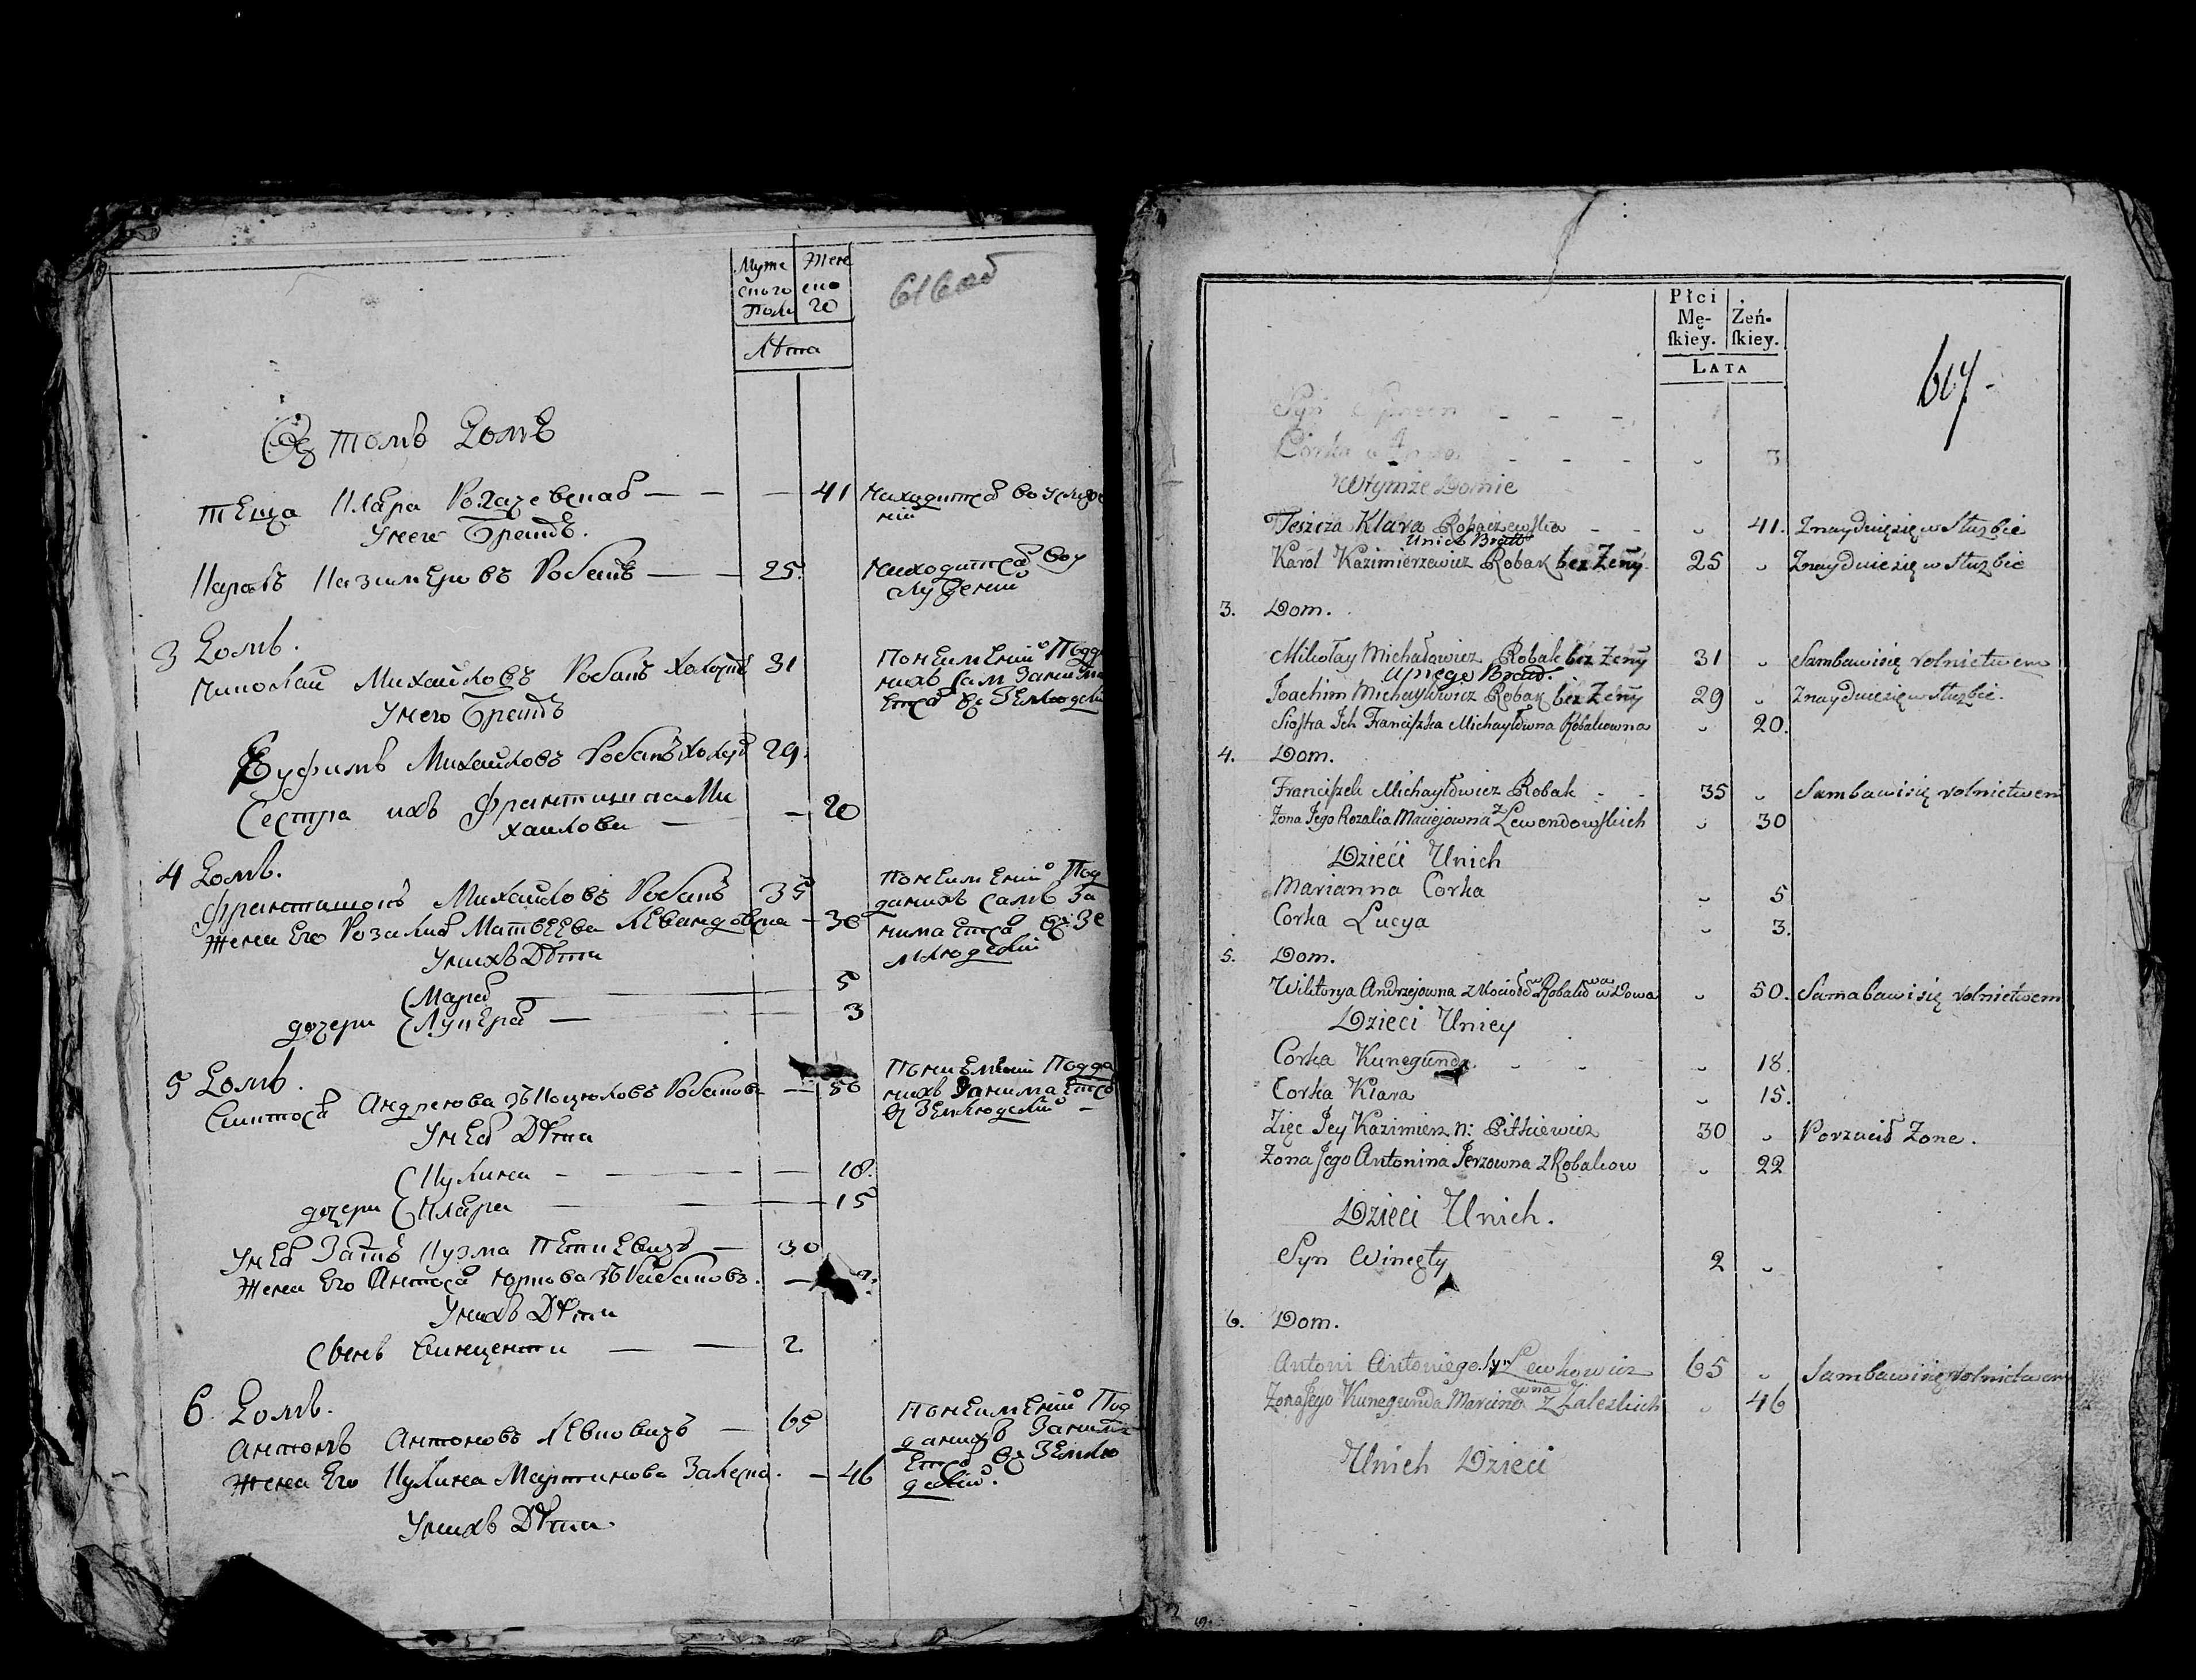 Муже
ского
Полу
Жене
ско
го
616 об
Лѣта
Въ томъ Домѣ
теща Клара Рогачевская — — — 41 находится во услуже
нiи
У него Братъ.
Кароль Казимеровъ Робакъ — — 25. находится во у
служенiи
3 Домъ.
Николай Михайловъ Робакъ холостъ 31 По неименiю Подда
нихъ Сам Занима
ется въ Земледелiи
У него Братъ
Еуфимъ Михайловъ Робакъ холостъ 29.
Сестра ихъ Франтишка Ми
хайлова — — 20
4 Домъ.
Франтишекъ Михайловъ Робакъ 35 По неименiю Под
данихъ самъ За
нимается въ Зе
мледелiи
Жена Его Розалiя Матвеева Левандовска — 30
У нихъ Дѣти
Марiя — 5
дочери Луцея — 3
5 Домъ.
Андреева зъ Коцюловъ Робакова — 50 По неименiю Подда
нихъ Занимается
въ Земледелiи —
У нея Дѣти
Кулина — — — — 18.
дочери Клара — — 15
У нея Зять Кузма Петкевичъ — 30
Жена Его Антося Юрьева зъ Рабаковъ. —
У нихъ Дѣти
Сынъ Винценти — — 2.
6 Домъ.
Антонъ Антоновъ Левковичъ — 65 По неименiю Под
данихъ Занима
ется въ Землю
делiи.
Жена Его Кулина Мартинова Залеска. — 46
У нихъ Дѣти
Płci
Mę-
skiey.
Żeń-
skiey.
LATA
617.
Syn
Corka 3
W tymże Domie
Teszcza Klara Rohaczewska - - 41. Znayduiesię w Służbie
Unich Bratt
Karól Kazimierzewicz Robak bez Żeny 25 Znayduiesię w Służbie
3. Dom.
Mikołay Michałowicz Robak bez Żeny 31 Sambawisię rolnictwem
Uniego Bratt.
Joachim Michayłowicz Robak bez Żeny 29 Znayduiesię w Służbie.
Siostra Ich Franciszka Michayłowna Robakowna 20.
4. Dom.
Franciszek Michayłowicz Robak - - 35 Sambawisię rolnictwem
Żona Jego Rozalia Maciejowna z Lewondowskich 30
Dzieci Unich
Marianna Corka 5
Corka Lucya 3.
5. Dom.
Wiktorya Andrzejowna z Kociołów Robakowa wDowa 50. Samabawisię rolnictwem
Dzieci Uniey
Corka Kunegunda - - 18.
Corka Klara 15.
Zięc Jey Kazimierz N: Pitkiewicz 30 Porzucił Żone.
Żona Jego Antonina Jerzowna z Robakow 22
Dzieci Unich.
Syn Winczęty 2
6. Dom.
Antoni Antoniego Syn Lewkowicz 65 Sambawisię rolnictwem
Żona Jego Kunegunda Marcinowna z Zaleskich 46
Unich Dzieci